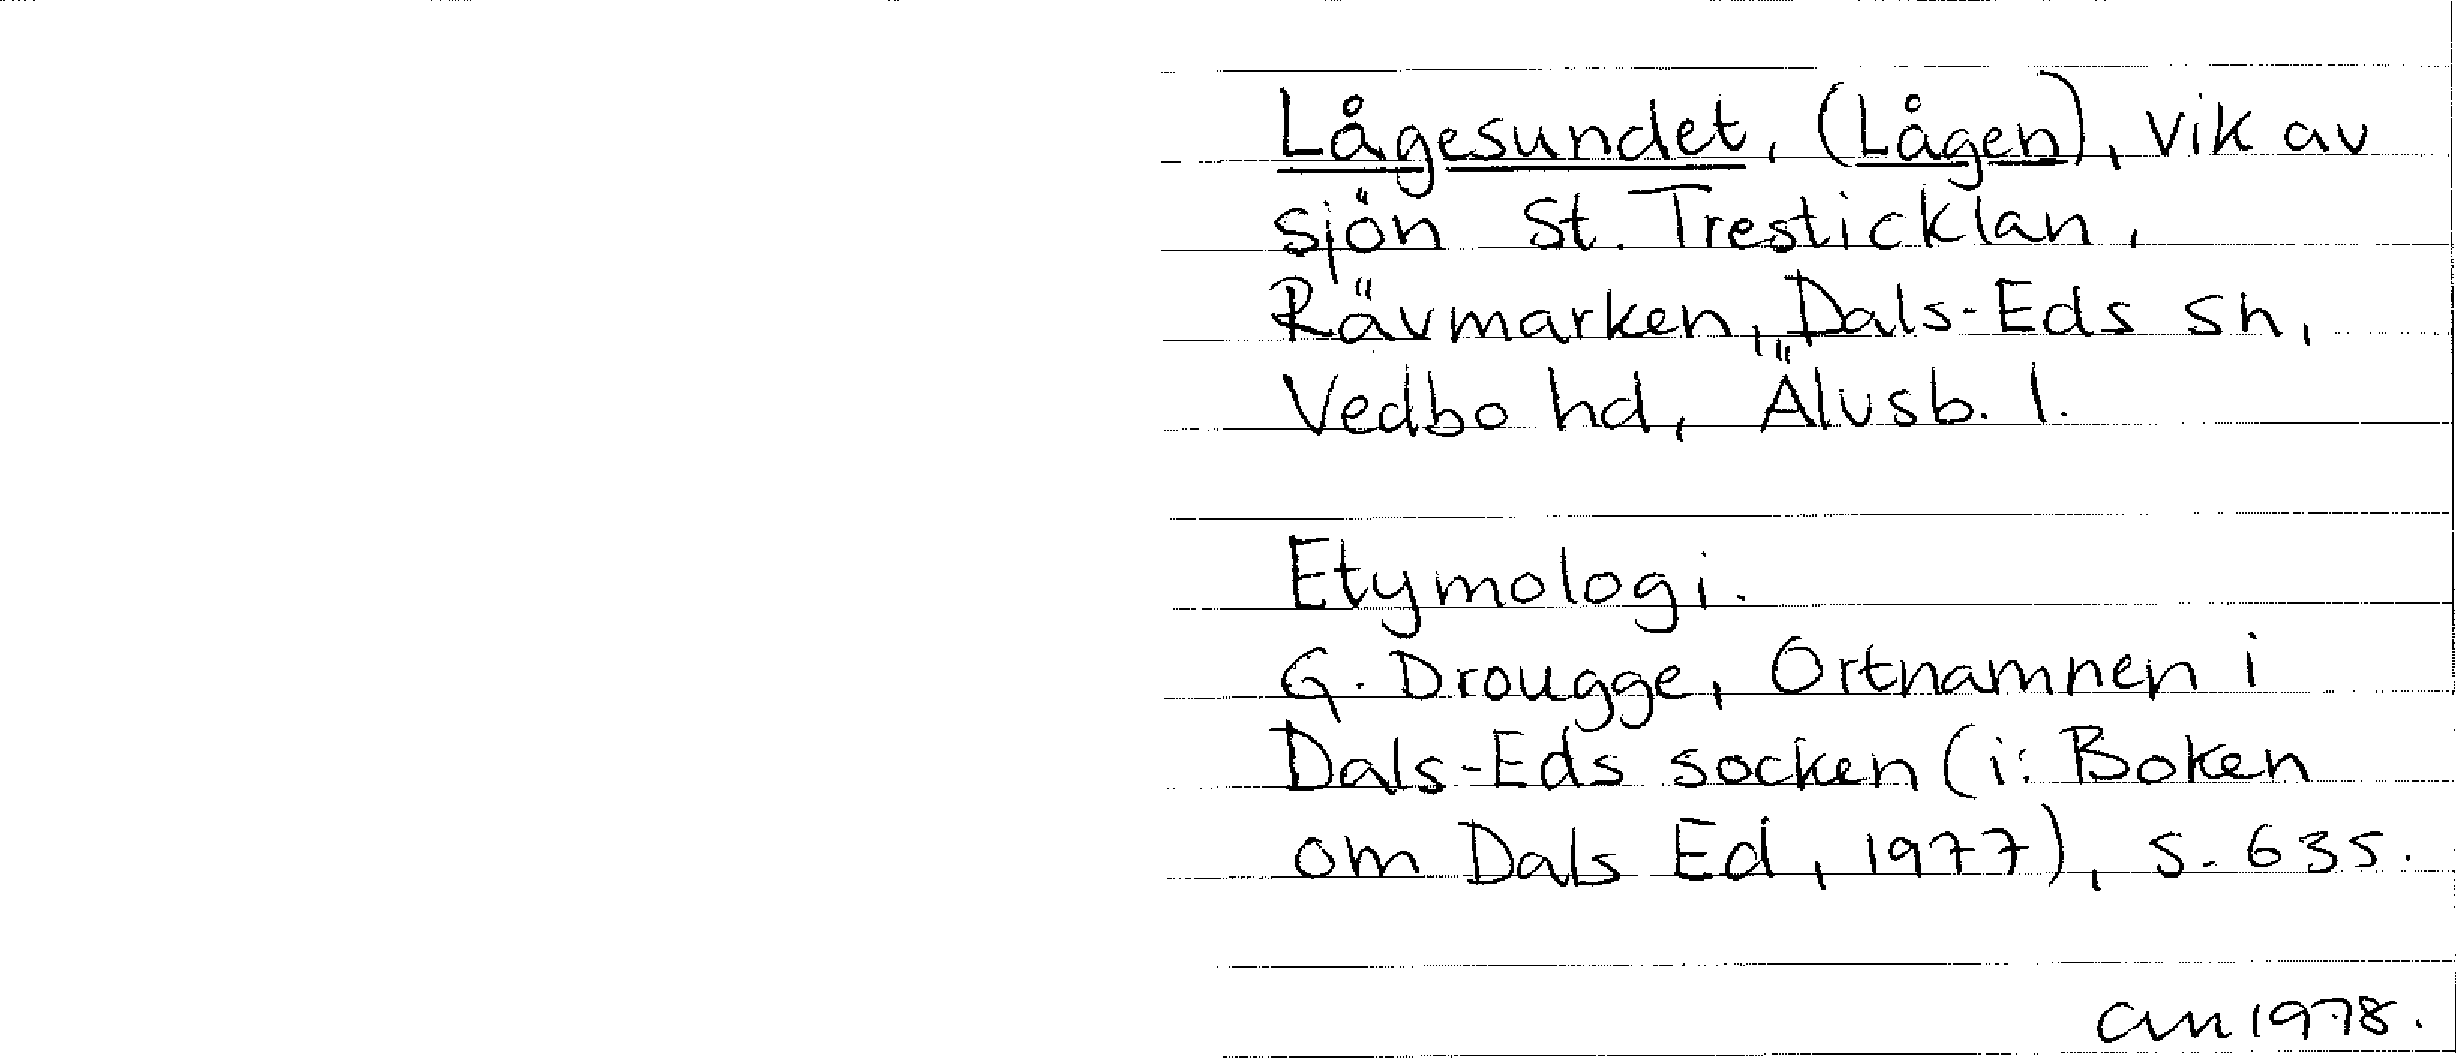 Lågesundet, (Lågen), vik av
sjön St. Tresticklan,
Rävmarken, Dals-Eds sn,
Vedbo hd, Älvsb. l.
Etymologi.
G. Drougge, Ortnamnen i
Dals-Eds socken (i: Boken
om Dals Ed, 1977), s. 635.
1978.